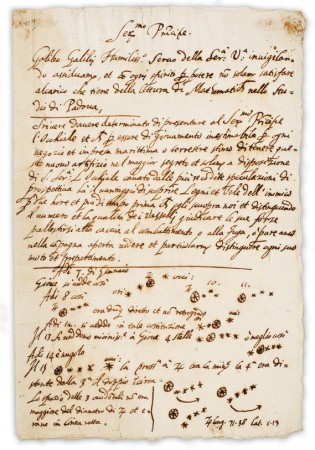 Ser.mo Principe.
Galileo Galilei Humiliss.o Servo della Ser.a V.a invigilan-
do assiduam.te, et cō ogni spirito p potere nō solam. satisfare
alcarico che tiene della lettura di Mathematich nello Stu-
dio di Padova,
Scrivere d'avere determinato di presentare al Ser.mo Principe
l'Occhiale et p essere di giovamento inestimabile p ogni
negozio et impresa marittima o terrestre stimo di tenere que-
sto nuovo artifizio nel maggior segreto et solam. a disposizione
di S. Ser.a L'Occhiale cavato dalle più recondite speculazioni di
prospettiva ha il vantaggio di scoprire Legni et Vele dell'inimico
p due hore et più di tempo prima che egli scuopra noi et distinguendo
il numero et la qualità dei Vasselli giudicare le sue forze
p allestirsi alla caccia al combattimento o alla fuga, o pure anco
nella capagna aperta vedere et particolarm. distinguere ogni suo
moto et preparamento.
Adi 7. di Gennaio
Giove si vede così
Adi 8 così
10. 11.
era dūq diretto et nō retrogrado
Adi 12. si vedde in tale costituzione
Il 13 si veddono vicinissi. a Giove 4 stelle o meglio così
Adi 14 è nugolo
Il 15 la pross.a a ♃ era la min.e la 4a era di-
stante dalla 3a il doppio
Lo spazio delle 3 occidētali nō era
maggiore del diametro di ♃ et e-
rano in linea retta.
♃ long. 71.38 lat. 1.13